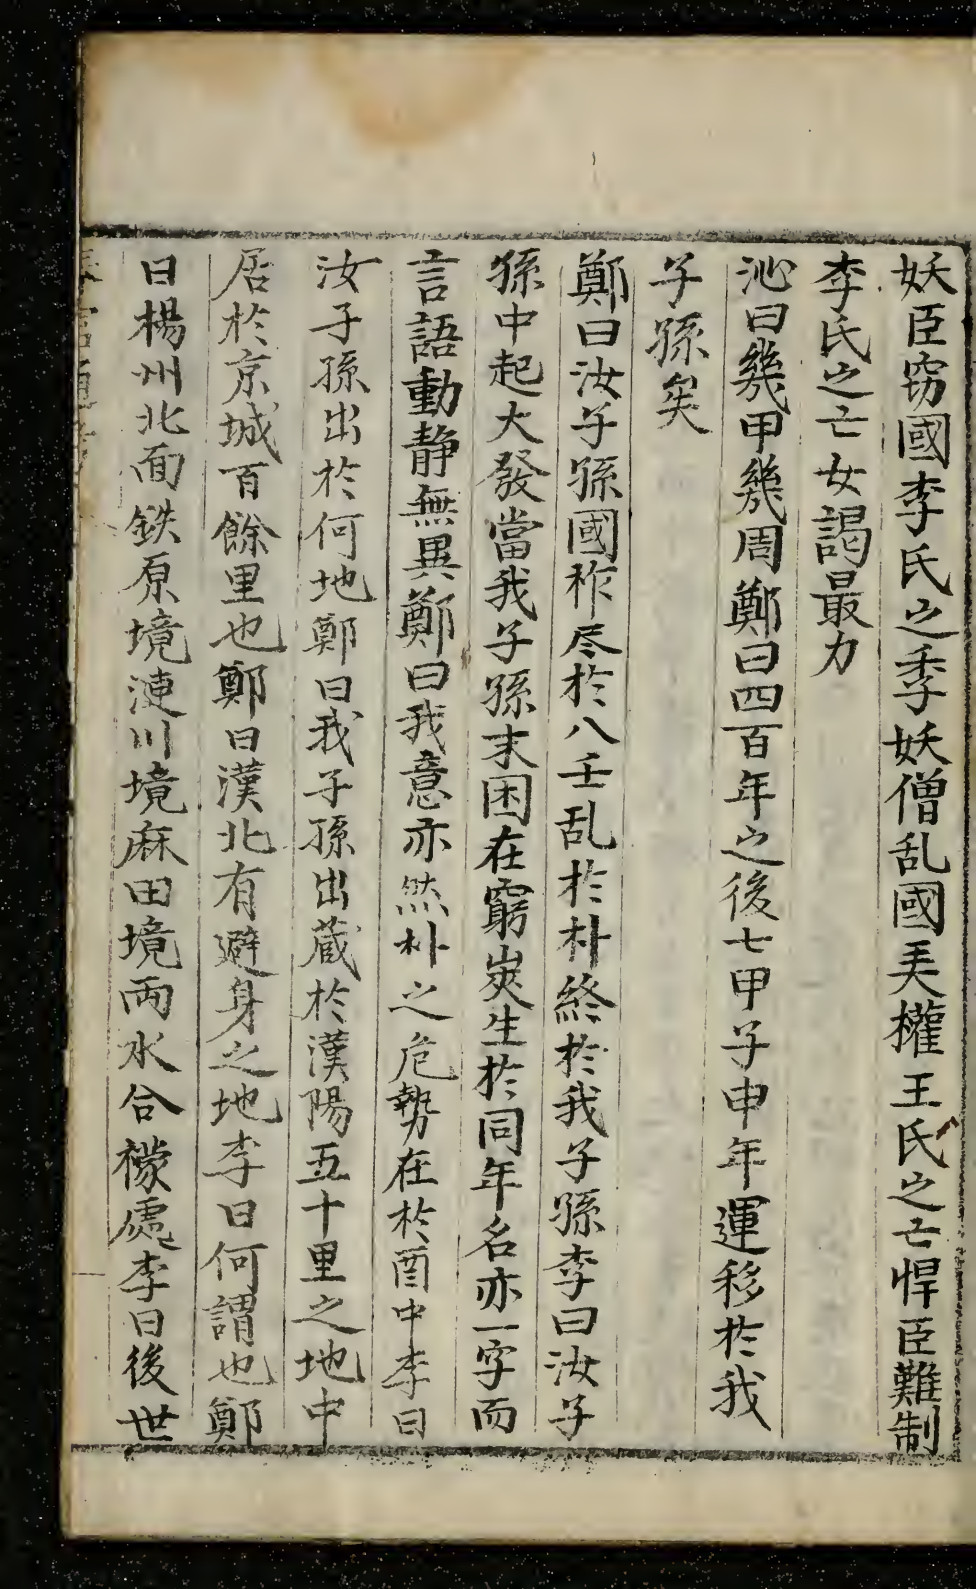 妖臣窃國李氏之季妖僧乱國美權王氏之亡悍臣難制
李氏之亡女謁最力
沁曰幾甲幾周鄭曰四百年之後七甲子申年運移於我
子孫矣
鄭曰汝子孫國祚尽於八壬乱於朴終於我子孫李曰汝子
孫中起大發當我子孫末困在窮炭生於同年名亦一字而
言語動静無異鄭曰我意亦然朴之危勢在於酉中李曰
汝子孫出於何地鄭曰我子孫出蔵於漢陽五十里之地中
居於京城百餘里也鄭曰漢北有避身之地李曰何謂也鄭
曰楊州北面鉄原境漣川境麻田境両水合襟處李曰後世